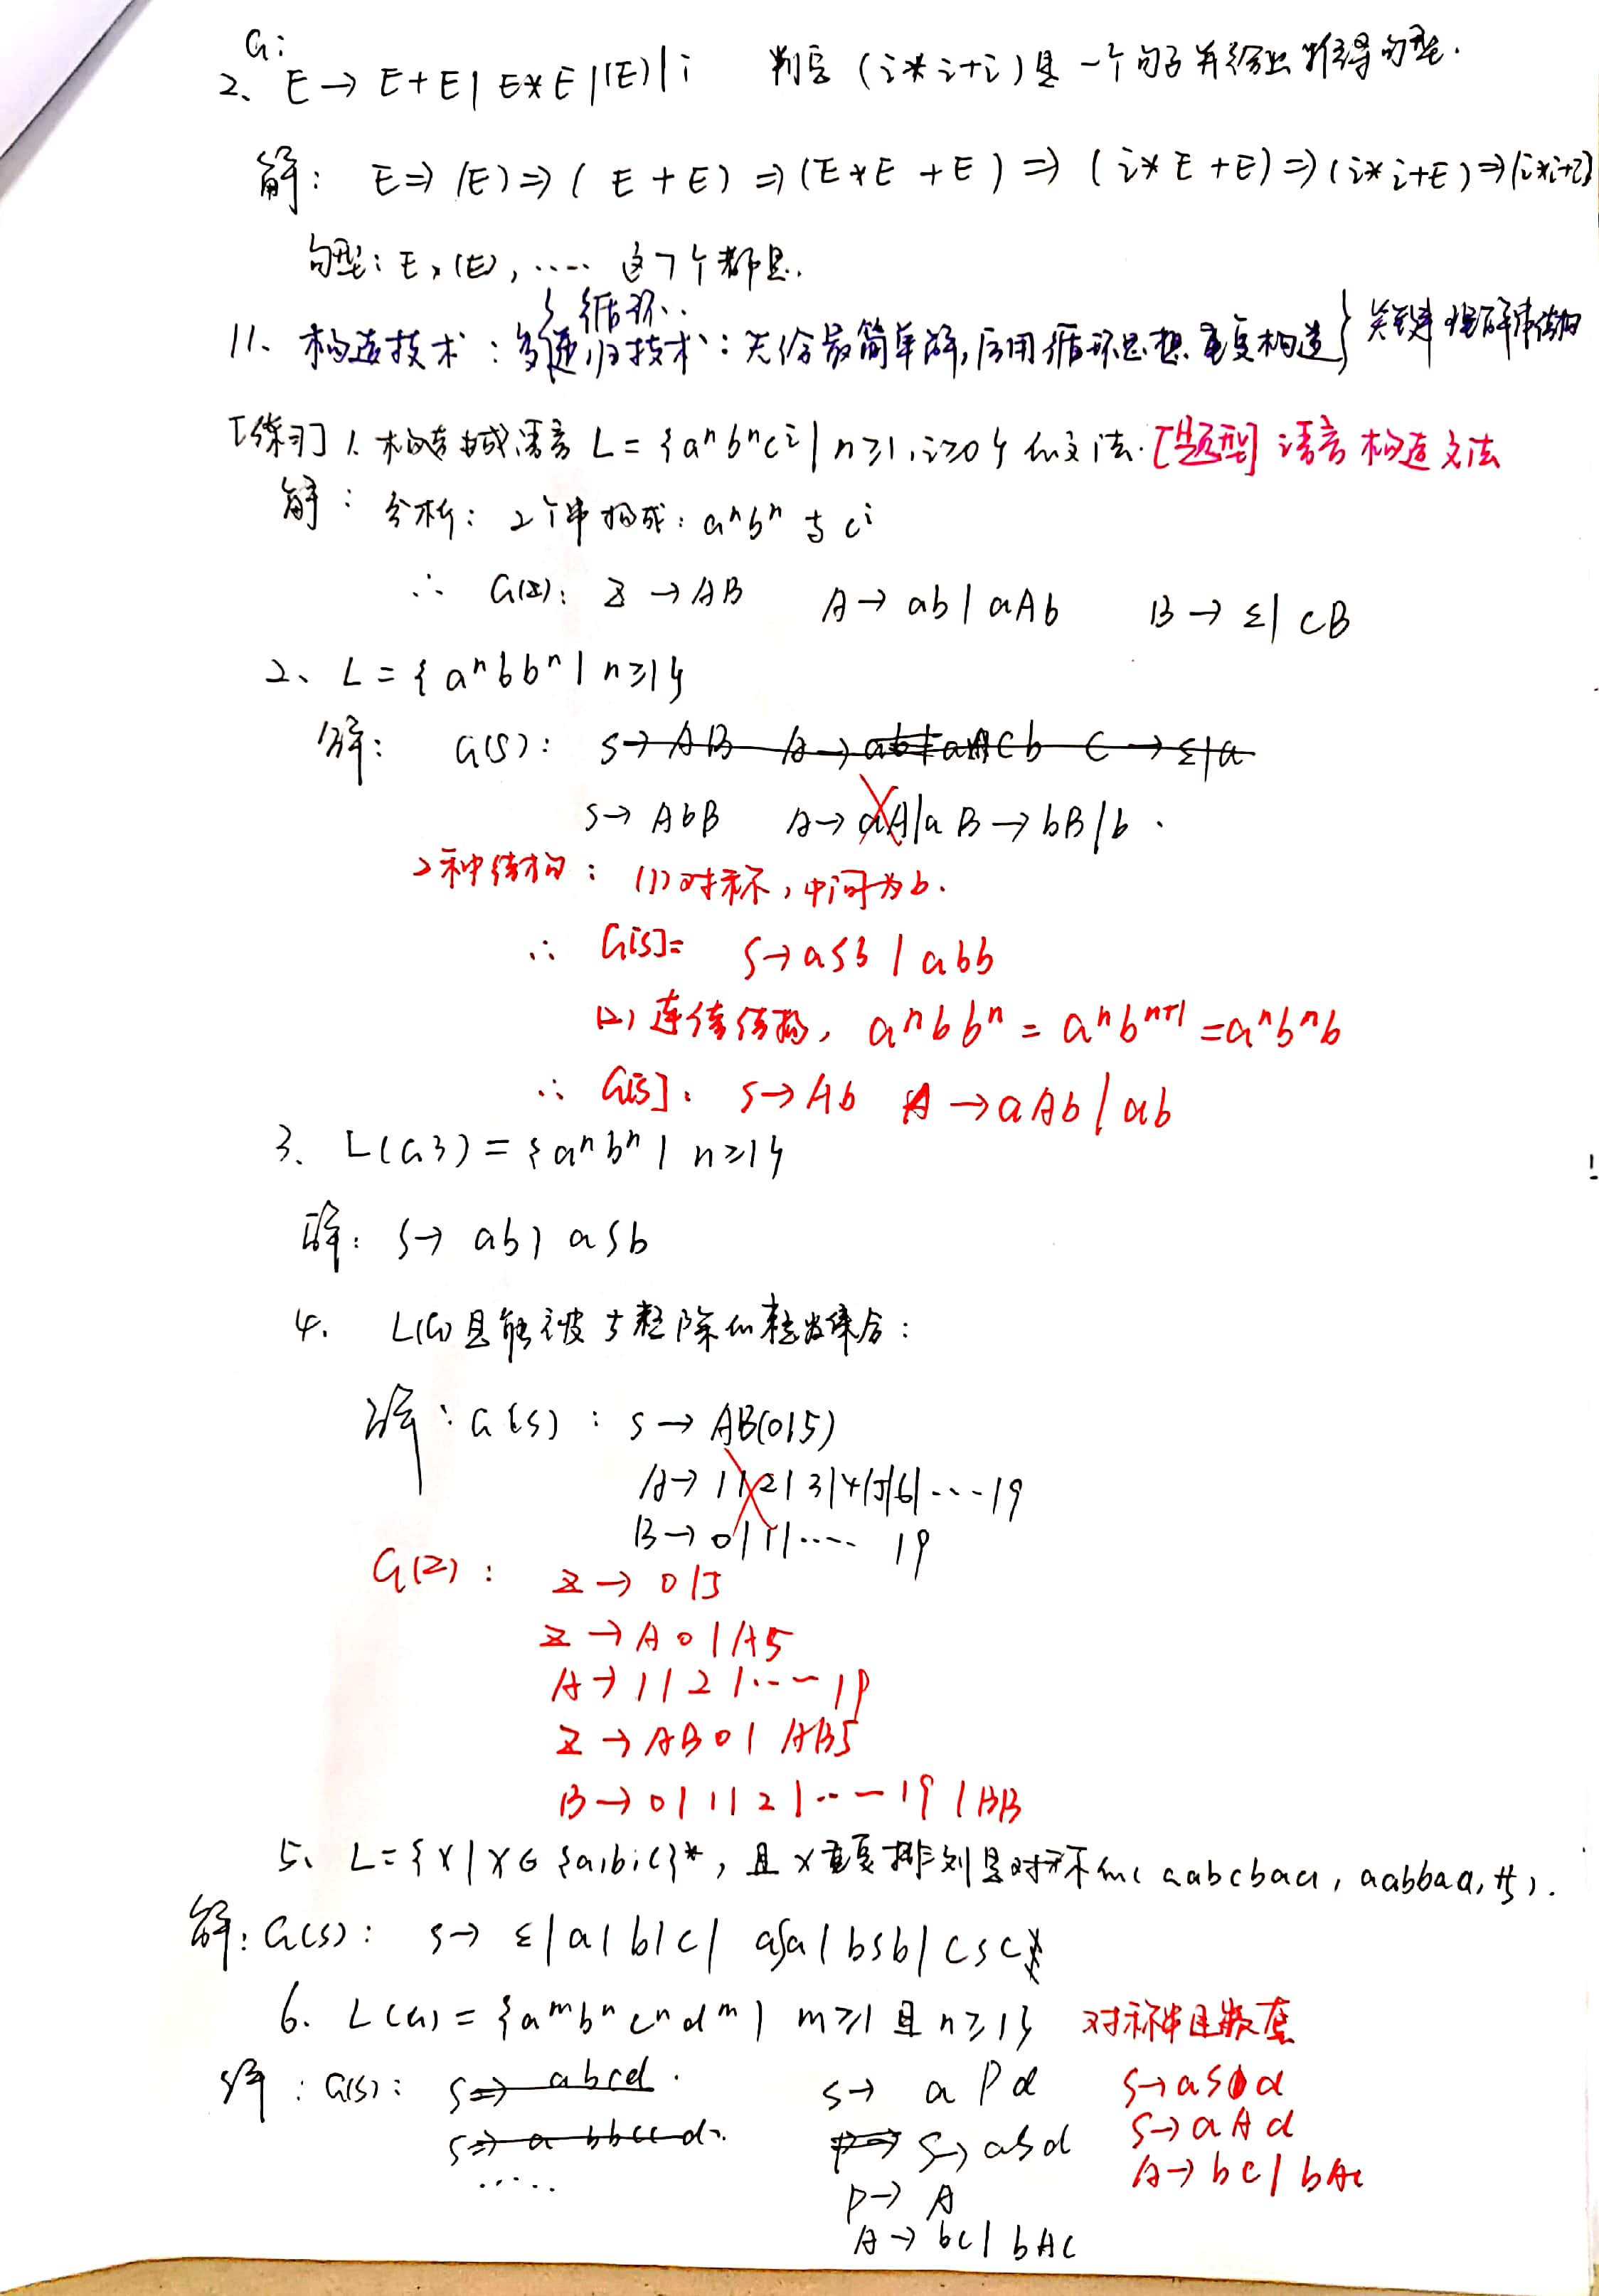 G:
2、 E → E+E | E*E | (E) | i 判定 (i*i+i) 是一个句子并给出推导句型.
解: E ⇒ (E) ⇒ (E+E) ⇒ (E*E+E) ⇒ (i*E+E) ⇒ (i*i+E) ⇒ (i*i+i)
句型: E, (E), ····· 这7个都是.
循环..
11、构造技术: 递归技术: 先给最简单解, 后用循环思想重复构造 } 关键
[练习] 1. 构造 语言 L = {aⁿbⁿcⁱ | n≥1, i≥0} 的文法. [题型] 语言构造文法
解: 分析: 2个串构成: aⁿbⁿ 与 cⁱ
∴ G(Z): Z → AB A → ab | aAb B → ε | cB
2、 L = {aⁿbbⁿ | n≥1}
解: G(S): S → AB A → aACb C → ε | a
S → AbB A → aA | a B → bB | b .
2种结构: (1) 对称, 中间为b.
∴ G[S]= S → aSb | abb
(2) 连续结构, aⁿbbⁿ = aⁿbⁿ⁺¹ = aⁿbⁿb
∴ G[S]: S → Ab A → aAb | ab
3、 L(G3) = {aⁿbⁿ | n≥1}
解: S → ab | aSb
4. L(G)是能被5整除的整数集合:
解: G(S): S → AB(0|5)
A → 1|2|3|4|5|6|···|9
B → 0|1|····|9
G(Z): Z → 0|5
Z → A0|A5
A → 1|2|···|9
Z → AB0|AB5
B → 0|1|2|···|9|BB
5、 L = {x | x∈{a,b,c}*, 且x重复排列是对称的( aabcbaa, aabbaa, 等).
解: G(S): S → ε|a|b|c| aSa|bSb|cSc
6. L(G) = {aᵐbⁿcⁿdᵐ | m≥1 且 n≥1} 对称串且嵌套
解: G(S): S ⇒ abcd. S → aPd S → aSd
S ⇒ abbccd. S → aSd S → aAd
····· P → A A → bc | bAc
A → bc | bAc